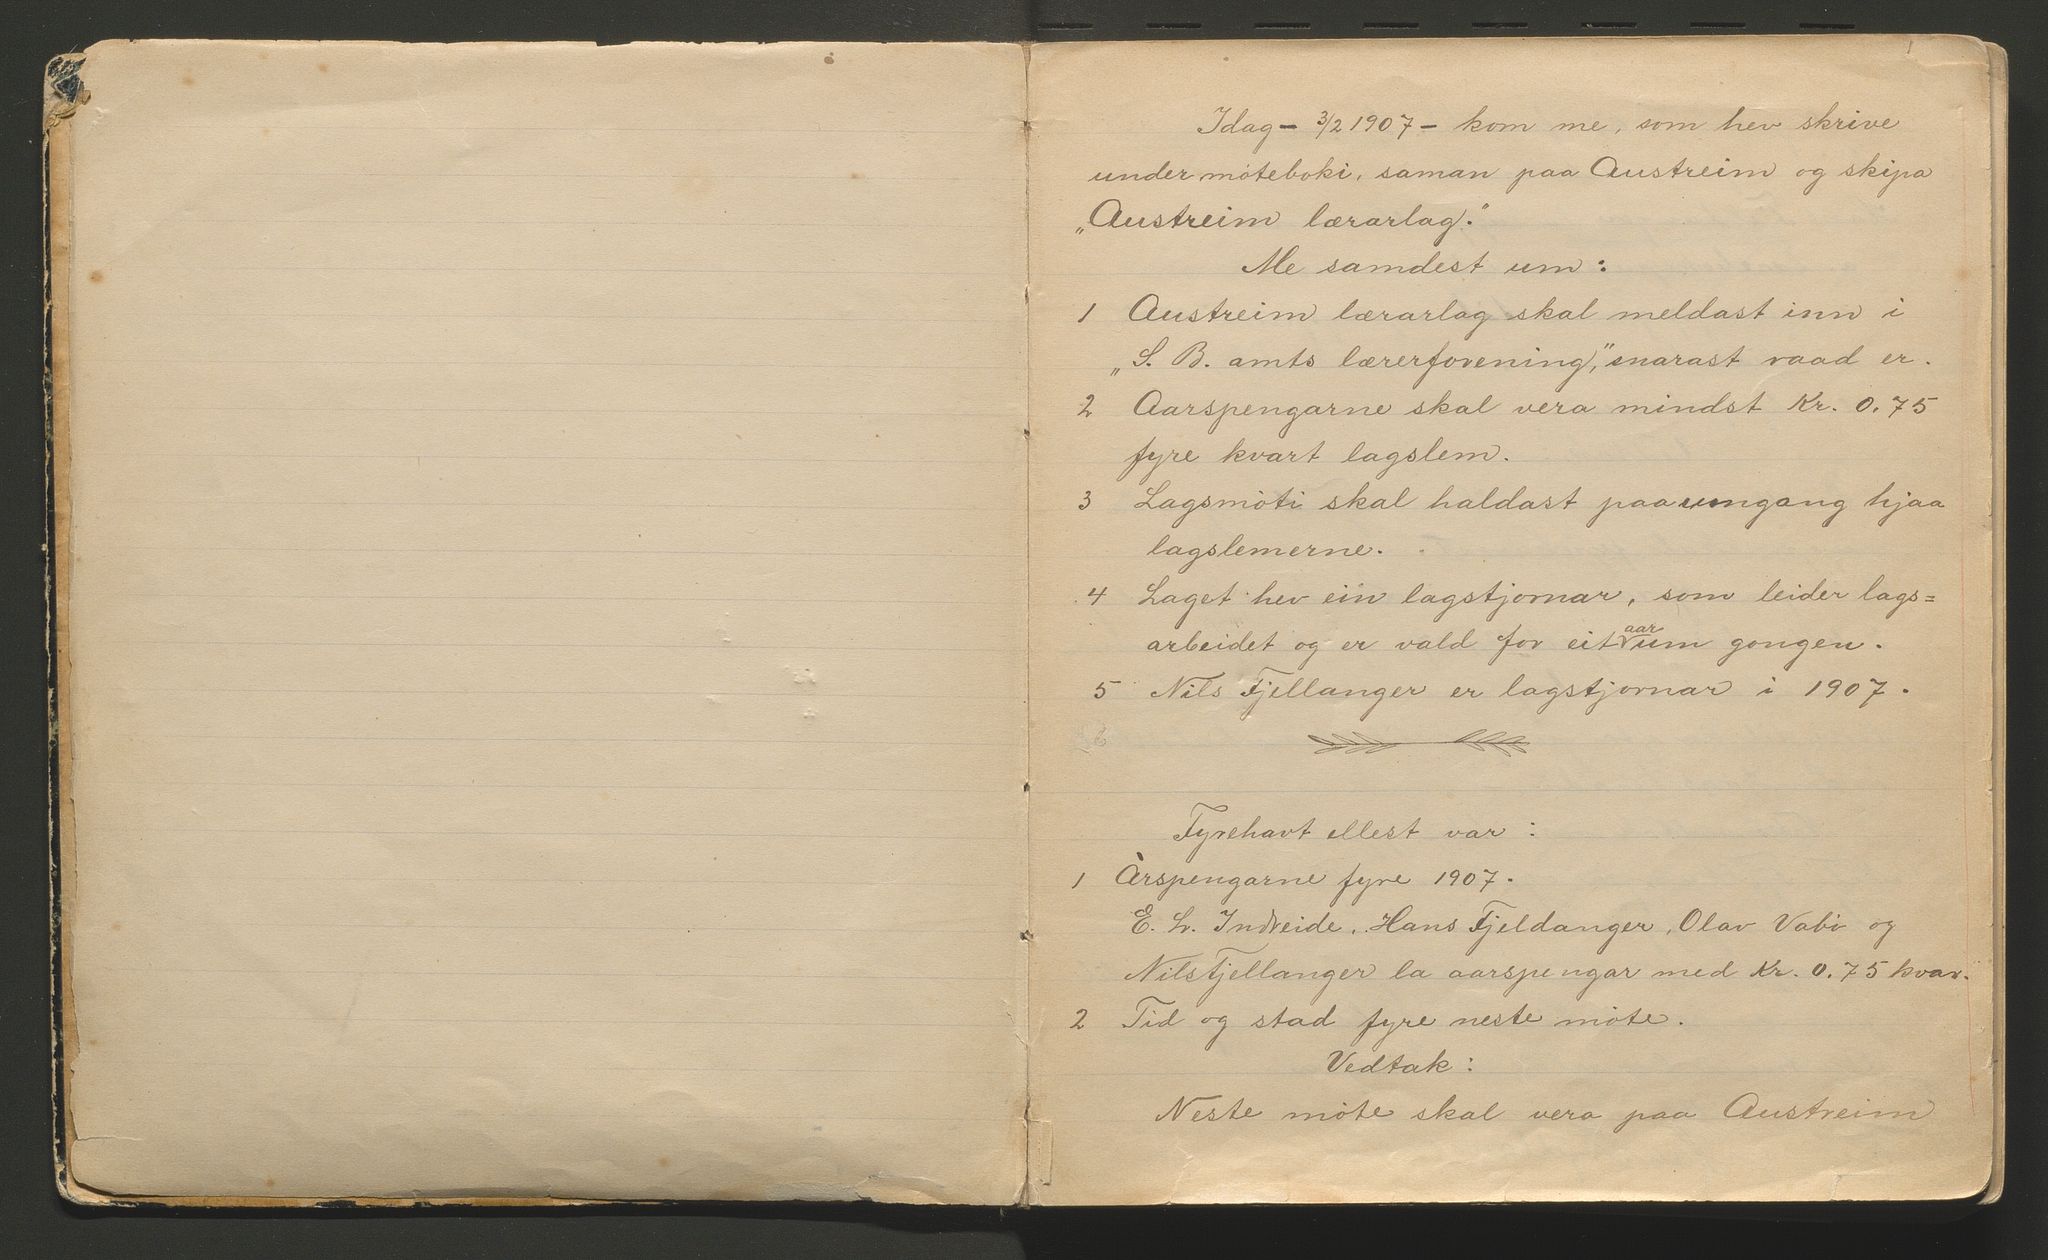 1
Idag - 3/2 1907 - kom me, som hev skrive
under móteboki, saman paa Austreim og skipa
„Austreim lærarlag."
Me samdest um:
1 Austreim lærarlag skal meldast inn i
„S. B. amts lærerforening," snarast raad er.
2 Aarspengarne skal vera mindst Kr. 0.75
fyre kvart lagslem.
3 Lagsmóti skal haldast paa umgang hjaa
lagslemerne.
4 Laget hev ein lagstjornar, som leider lags=
arbeidet og er vald for eit aar um gongen.
5 Nils Fjellanger er lagstjornar i 1907.
Fyrehavt ellest var:
1 Àrspengarne fyre 1907.
E. L. Indreide, Hans Fjeldanger, Olav Vabó og
Nils Fjellanger la aarspengar med Kr. 0.75 kvar.
2 Tid og stad fyre neste móte.
Vedtak:
Neste móte skal vera paa Austreim